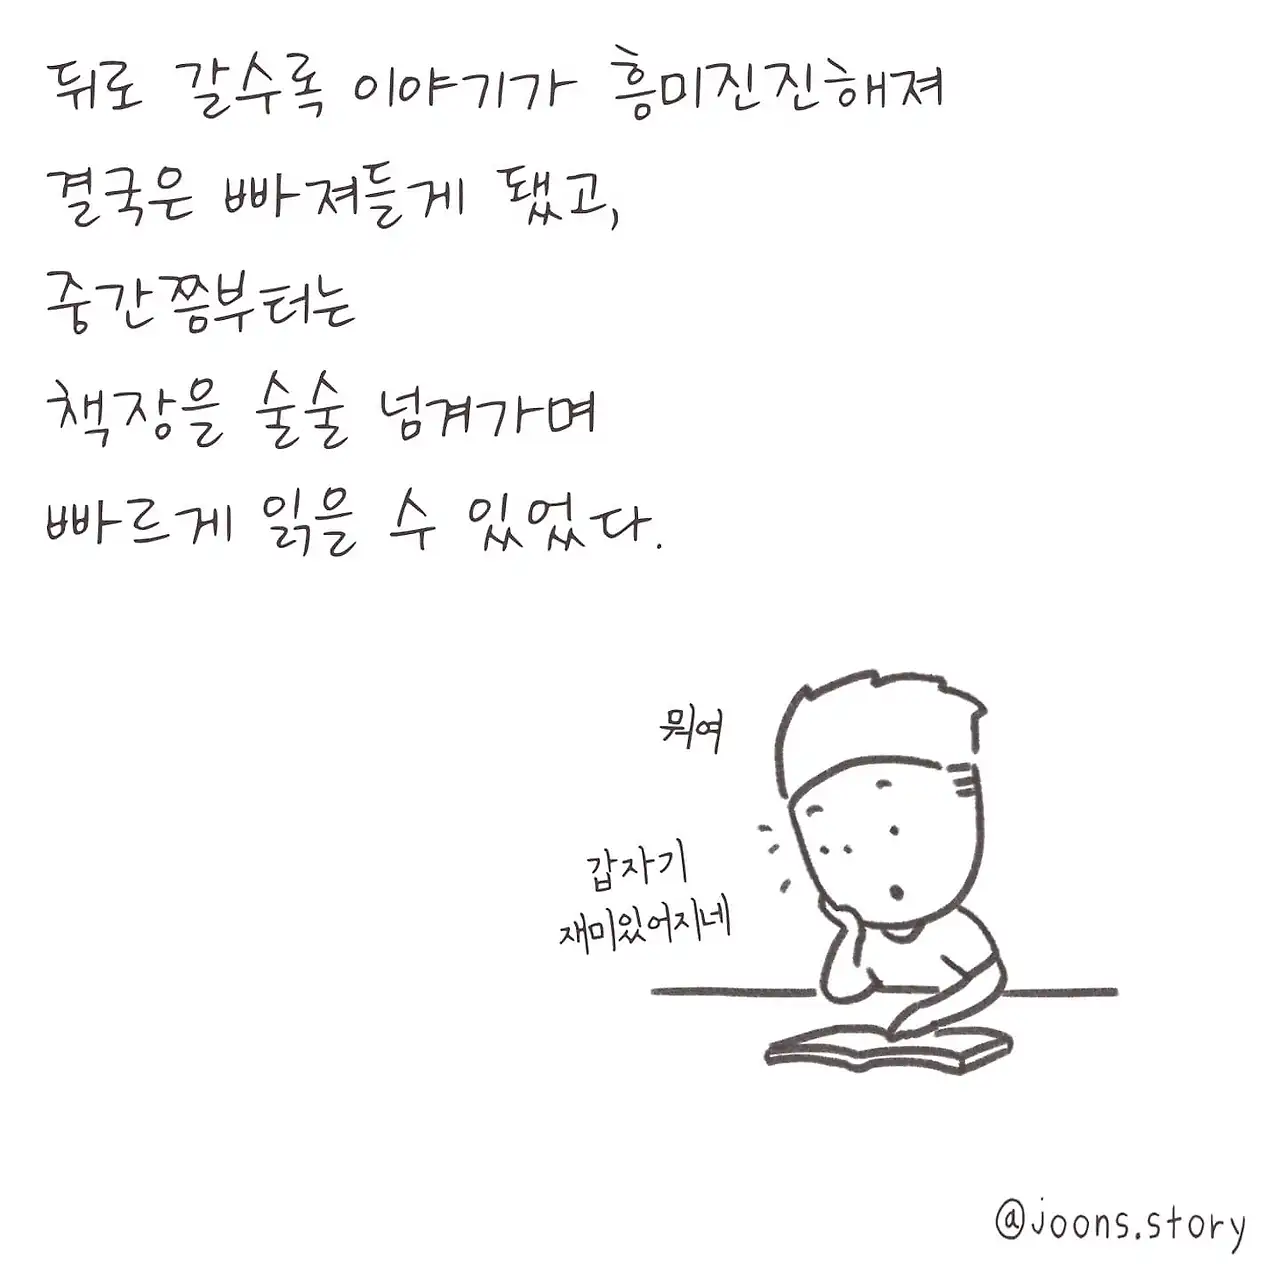 뒤로 갈수록 이야기가 흥미진진해져
결국은 빠져들게 됐고,
중간쯤부터는
책장을 술술 넘겨가며
빠르게 읽을 수 있었다.
뭐여
갑자기
재미있어지네
@joons.story